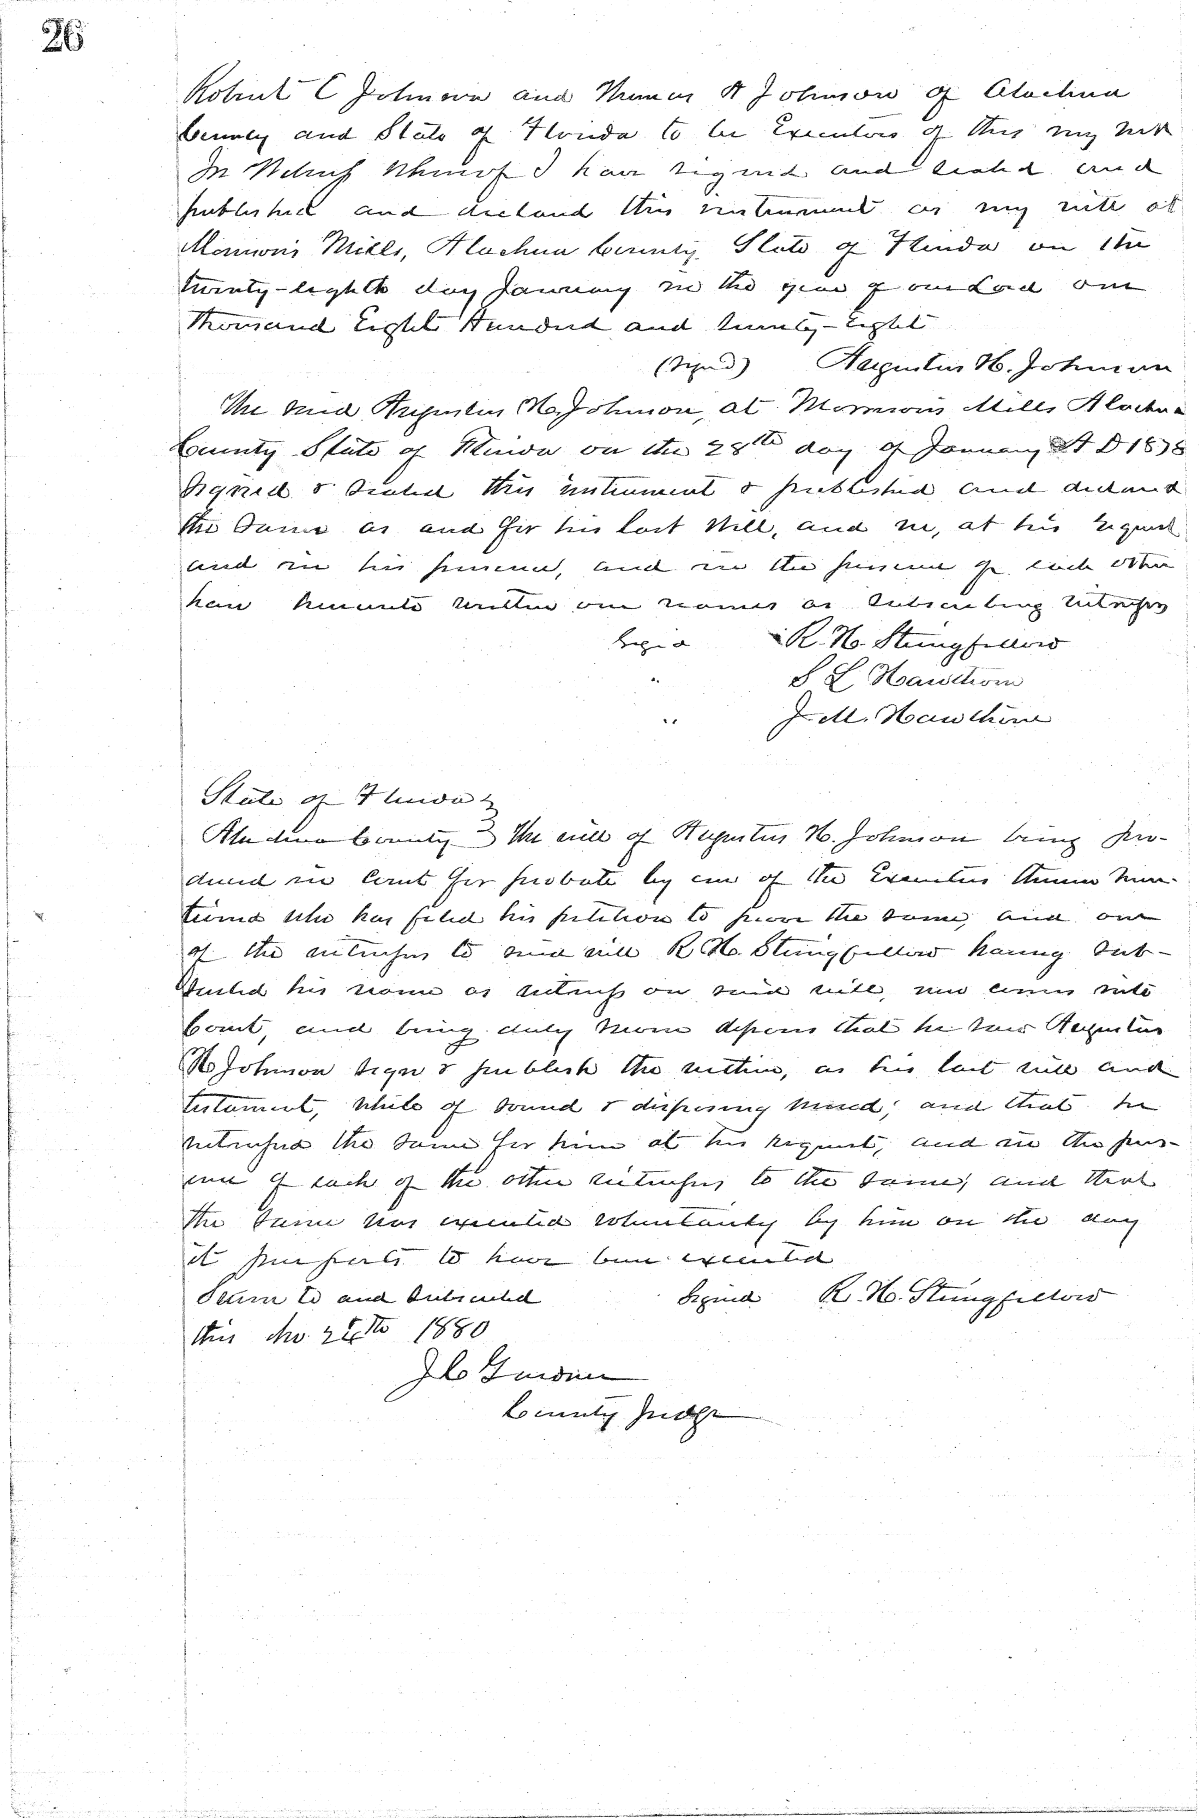 26
Robert C Johnson and Thomas A Johnson of Alachua
County and State of Florida to be Executors of this my will
In Witness Whereof I have signed and sealed and
published and declared this instrument as my will at
Morrison's Mills, Alachua County, State of Florida on the
twenty-eighth day January in the year of our Lord one
Thousand Eight Hundred and Seventy-Eight
(Signed) Augustus H. Johnson
The said Augustus H. Johnson, at Morrison's Mills Alachua
County State of Florida on the 28th day of January A D 1878
signed & sealed this instrument & published and declared
the same as and for his last Will, and we, at his request
and in his presence, and in the presence of each other
have hereunto written our names as subscribing witnesses
Signed R. H. Stringfellow
" S L Hawthorn
" J. M. Hawthorne
State of Florida }
Alachua County } The will of Augustus H. Johnson being pro-
duced in Court for probate by one of the Executors therein men-
tioned who has filed his petition to prove the same, and one
of the witnesses to said will R. H. Stringfellow having sub-
scribed his name as witness on said will, now comes into
Court, and being duly sworn deposes that he saw Augustus
H Johnson sign & publish the within, as his last will and
testament, while of sound & disposing mind; and that he
witnessed the same for him at his request, and in the pres-
ence of each of the other witnesses to the same; and that
the same was executed voluntarily by him on the day
it purports to have been executed
Sworn to and subscribed Signed R. H. Stringfellow
this 24th 1880
J C Gardner
County Judge